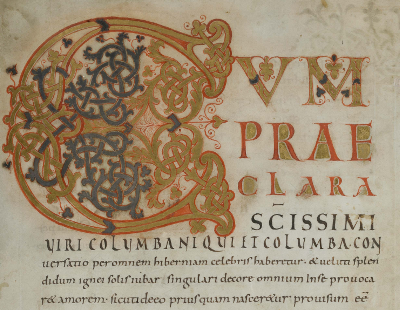 CVM
PRAE
CLARA
SC̄ISSIMI
UIRI COLUMBANI QUI ET COLUMBA. CON
uersatio per omnem hiberniam celebris haber&ur. & ueluti splen
didum ignei solis iubar singulari decore omnium inse prouoca
r& amorem. sicuti deo priusquam nascer&ur prouisum eē